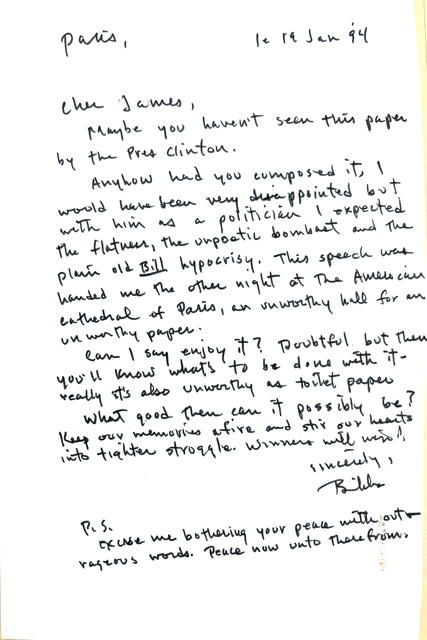 Paris, le 19 Jan '94
Cher James,
Maybe you haven't seen this paper
by the Pres Clinton.
Anyhow had you composed it, I
would have been very disappointed but
with him as a politician I expected
the flatness, the unpoetic bombast and the
plain old Bill hypocrisy. This speech was
handed me the other night at the American
cathedral of Paris, an unworthy hall for an
unworthy paper.
Can I say enjoy it? Doubtful but then
you'll know what's to be done with it -
really it's also unworthy as toilet paper
What good then can it possibly be?
Keep our memories afire and stir our hearts
into tighter struggle. Winners will win!
sincerely,
P.S.
Excuse me bothering your peace with out-
rageous words. Peace now unto